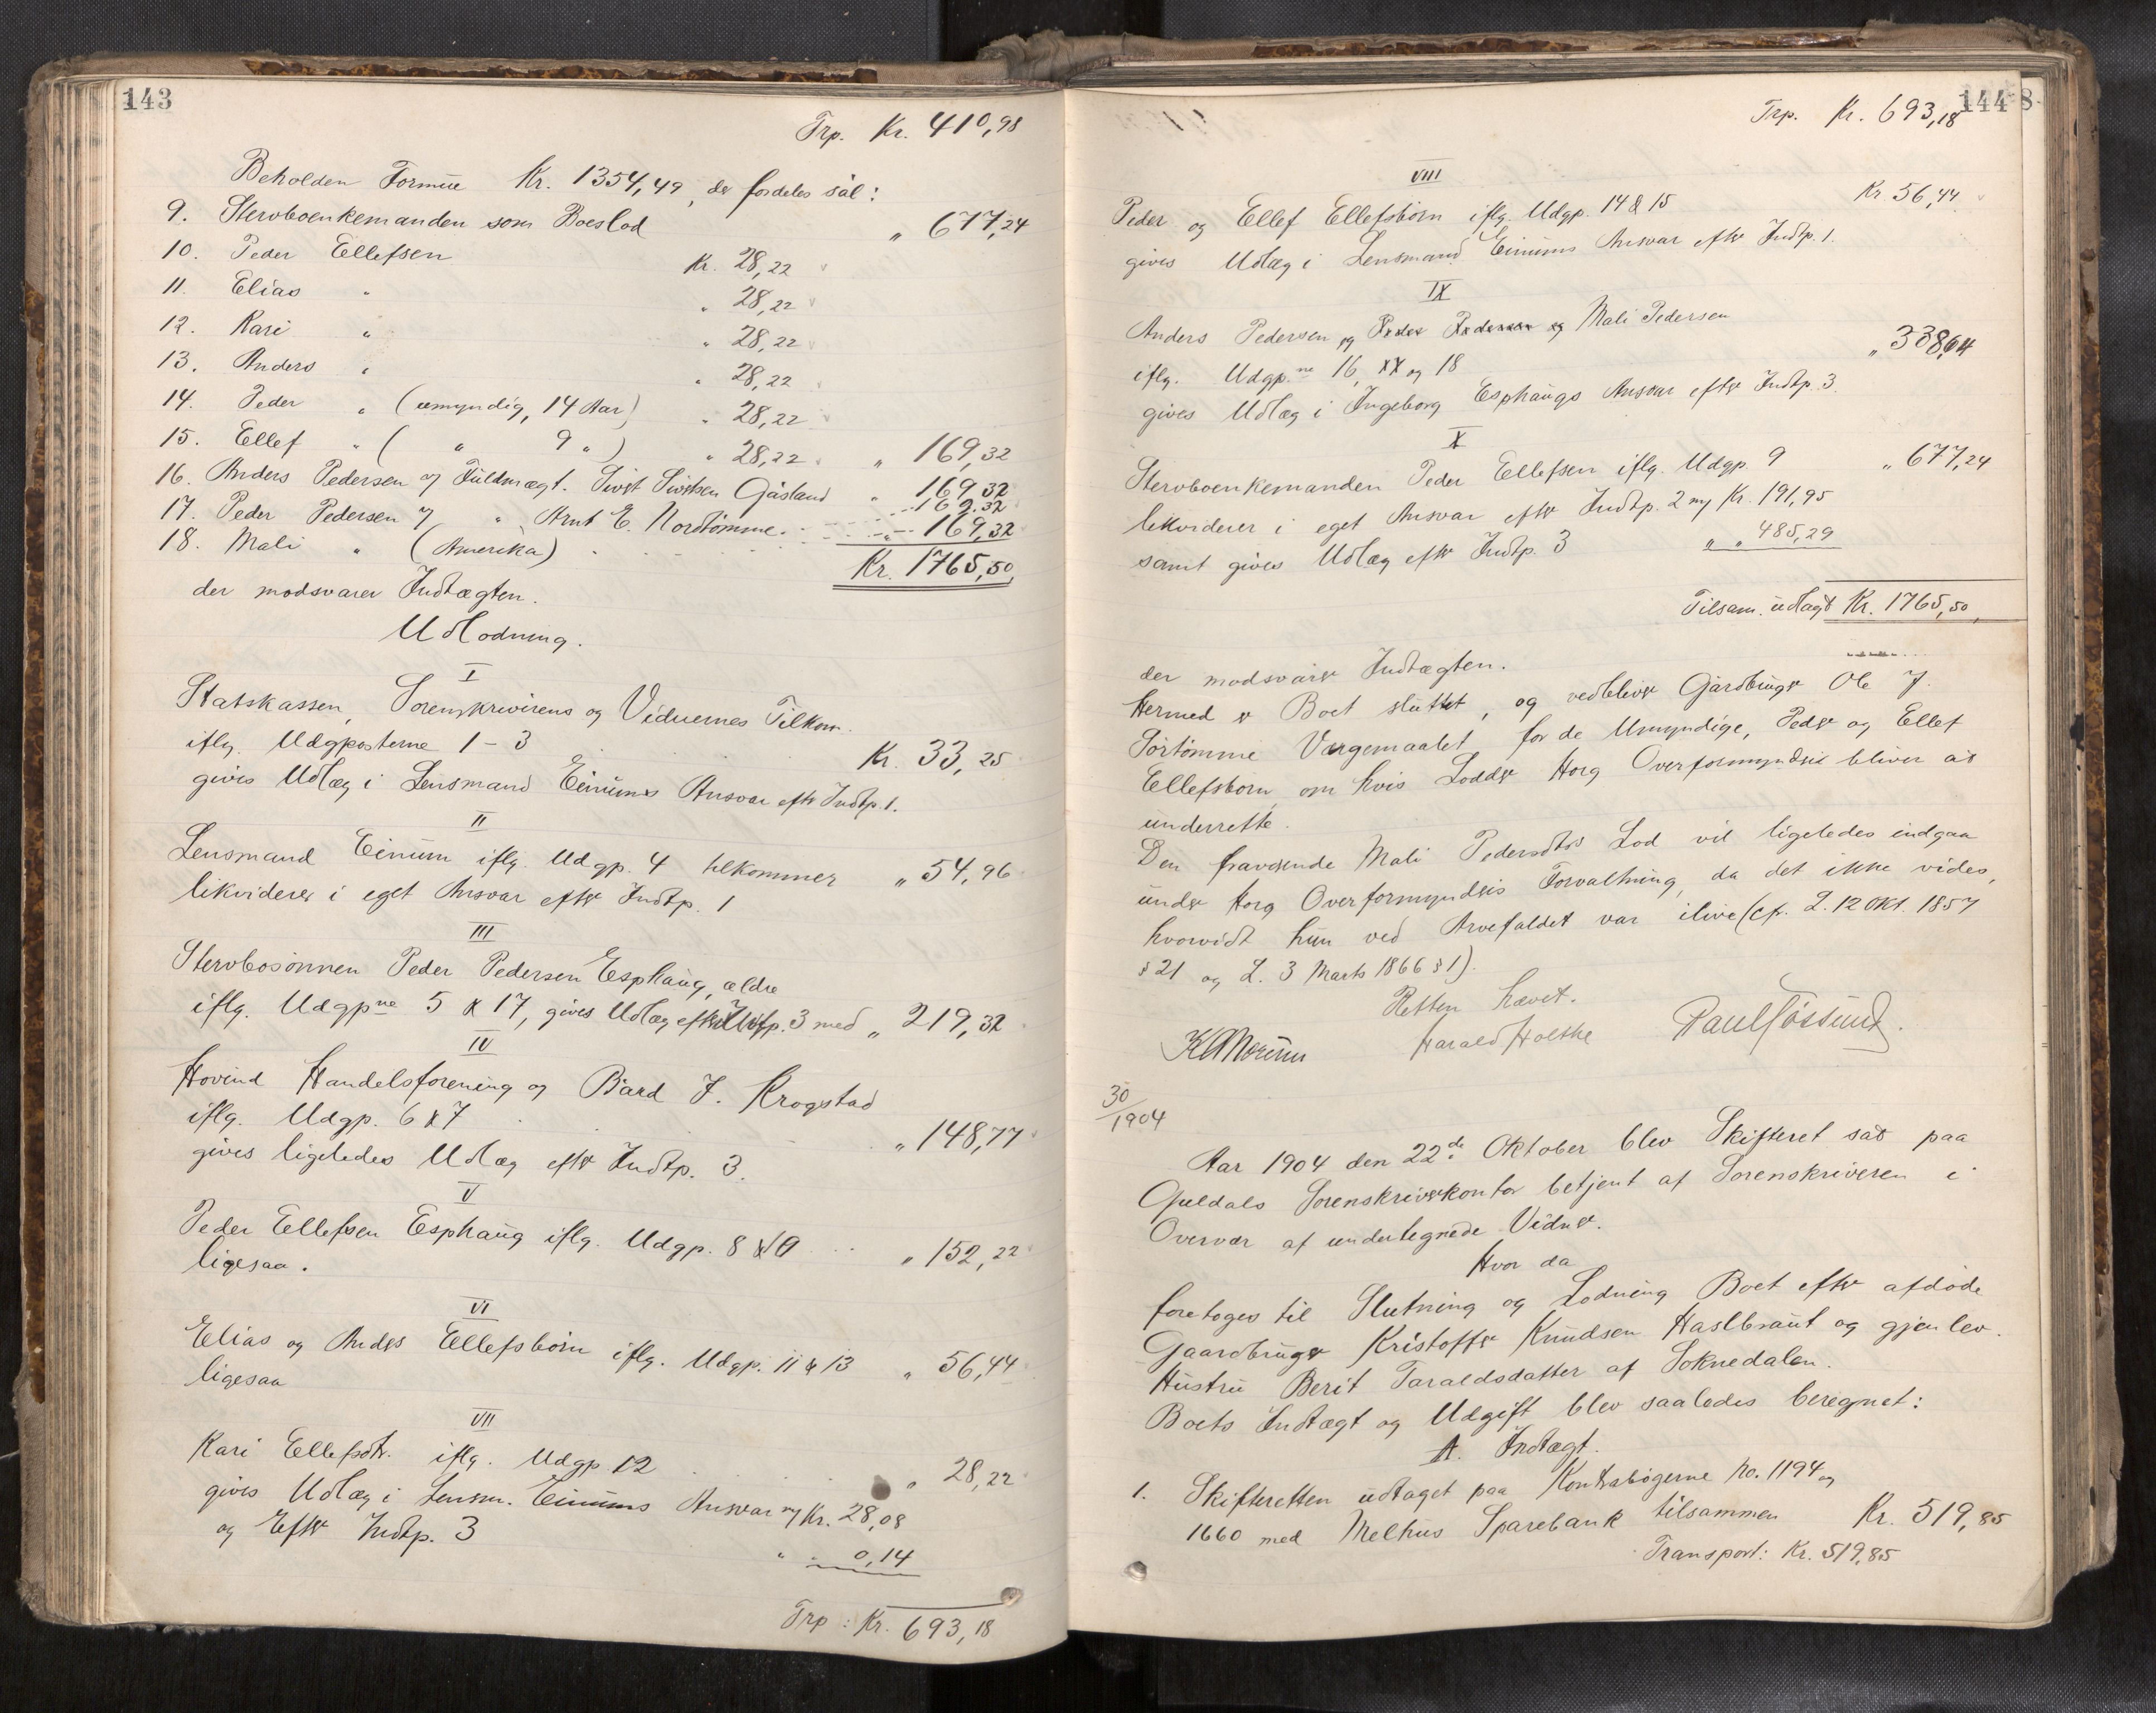 143
Trp. Kr. 410,98
Beholden Formue Kr. 1354,49, der fordeles sål:
9. Stervboenkemanden som Boeslod " 677,24
10. Peder Ellefsen Kr. 28,22
11. Elias " " 28,22
12. Kari " " 28,22
13. Anders " " 28,22
14. Peder " (umyndig, 14 Aar) " 28,22
15. Ellef " ( " 9 " ) " 28,22 " 169,32
16. Anders Pedersen v/ Fuldmægt. Sivert Sivertsen Gåsland " 169,32
17. Peder Pedersen v/ " Arnt E. Nordtömme " 169,32
18. Mali " (Amerika) " 169,32
Kr. 1765,50
der modsvarer Indtægten.
Udlodning.
I
Statskassen, Sorenskriverens og Vidnernes Tilkom.
iflg. Udgposterne 1-3 Kr. 33,25
gives Udlæg i Lensmand Einums Ansvar efter Indtp. 1.
II
Lensmand Einum iflg. Udgp. 4 tilkommer " 54,96
likviderer i eget Ansvar efter Indtp. 1
III
Stervbosönnen Peder Pedersen Esphaug, ældre
iflg. Udgpne 5 & 17, gives Udlæg efter Indtp. 3 med " 219,32
IV
Hovind Handelsforening og Bård J. Krogstad
iflg. Udgp. 6 & 7 " 148,77
gives ligeledes Udlæg efter Indtp. 3.
V
Peder Ellefsen Esphaug iflg. Udgp. 8 & 10 " 152,22
ligesaa.
VI
Elias og Anders Ellefsbörn iflg. Udgp. 11 & 13 " 56,44
ligesaa
VII
Kari Ellefsdtr. iflg. Udgp 12 " 28,22
gives Udlæg i Lensm. Einums Ansvar m/ Kr. 28,08
og Efter Indtp. 3 " " 0,14
Trp: Kr. 693,18
144
8
Trp. Kr. 693,18
VIII
Peder og Ellef Ellefsbörn iflg. Udgp. 14 & 15 Kr 56,44
gives Udlæg i Lensmand Einums Ansvar efter Indtp. 1.
IX
Anders Pedersen og Peder Pedersen og Mali Pedersen
iflg. Udgp.ne 16, 17 og 18 " 338,64
gives Udlæg i Ingeborg Esphaugs Ansvar efter Indtp. 3.
X
Stervboenkemanden Peder Ellefsen iflg. Udgp. 9 " 677,24
likviderer i eget Ansvar efter Indtp. 2 m/ Kr. 191,95
samt gives Udlæg efter Indtp. 3 " " 485,29
Tilsam. udlagt Kr. 1765,50
der modsvarer Indtægten.
Hermed er Boet sluttet, og vedbliver Gårdbruger Ole J.
Sörtömme Værgemaalet for de Umyndige, Peder og Ellef
Ellefsbörn, om hvis Lodder Horg Overformynderi bliver at
underrette.
Den fraværende Mali Pedersdtrs Lod vil ligeledes indgaa
under Horg Overformynderis Forvaltning, da det ikke vides,
hvorvidt hun ved Arvefaldet var ilive (cfr. L. 12 Okt. 1857
§ 21 og L. 3 Marts 1866 § 1).
Retten hævet.
Harald Holthe
30/1904
Aar 1904 den 22de Oktober blev Skifteret sat paa
Guldals Sorenskriverkontor betjent af Sorenskriveren i
Overvær af undertegnede Vidner.
Hvor da
foretoges til Slutning og Lodning Boet efter afdöde
Gaardbruger Kristoffer Knudsen Haslbraut og gjenlev.
Hustru Berit Taraldsdatter af Soknedalen.
Boets Indtægt og Udgift blev saaledes beregnet:
A. Indtægt.
1. Skifteretten udtaget paa Kontrabögerne No. 1194 og
1660 med Melhus Sparebank tilsammen Kr. 519,85
Transport: Kr. 519,85